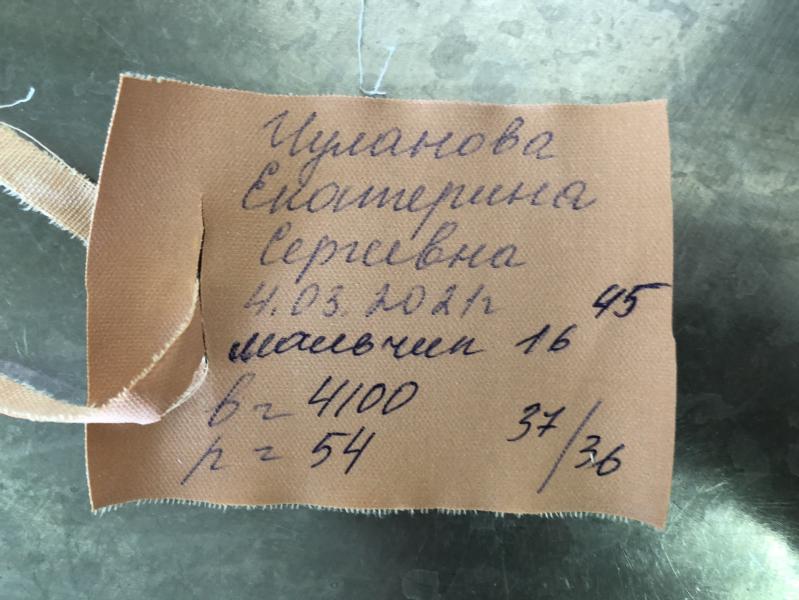 Чуланова
Екатерина
Сергеевна
4.03.2021г 16 45
мальчик
в = 4100
р = 54 37/36